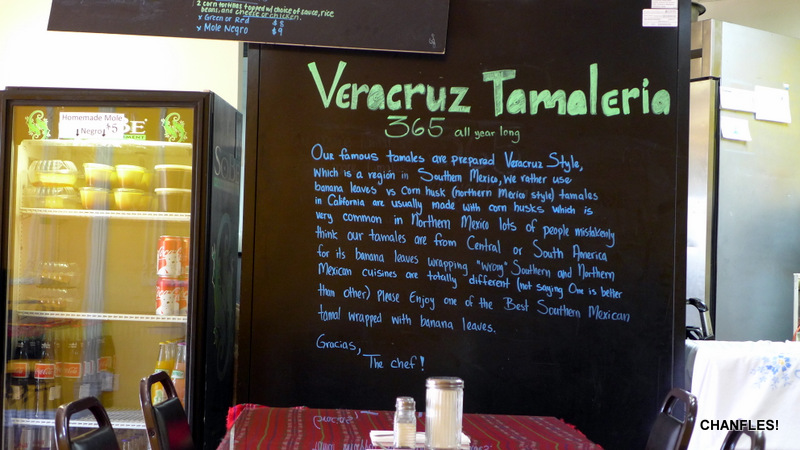 2 corn tortillas topped w/ choice of sauce, rice
beans, and cheese or chicken.
x Green or Red $8
x Mole Negro $9
Homemade Mole
Negro $5
Veracruz Tamaleria
365 all year long
Our famous tamales are prepared Veracruz Style,
which is a region in Southern Mexico, we rather use
banana leaves vs corn husk (northern Mexico style) tamales
in California are usually made with corn husks which is
very common in Northern Mexico lots of people mistakenly
think our tamales are from Central or South America
for its banana leaves wrapping "wrong" Southern and Northern
Mexican cuisines are totally different (not saying One is better
than other) Please Enjoy one of the Best Southern Mexican
tamal wrapped with banana leaves.
Gracias,
The chef!
CHANFLES!